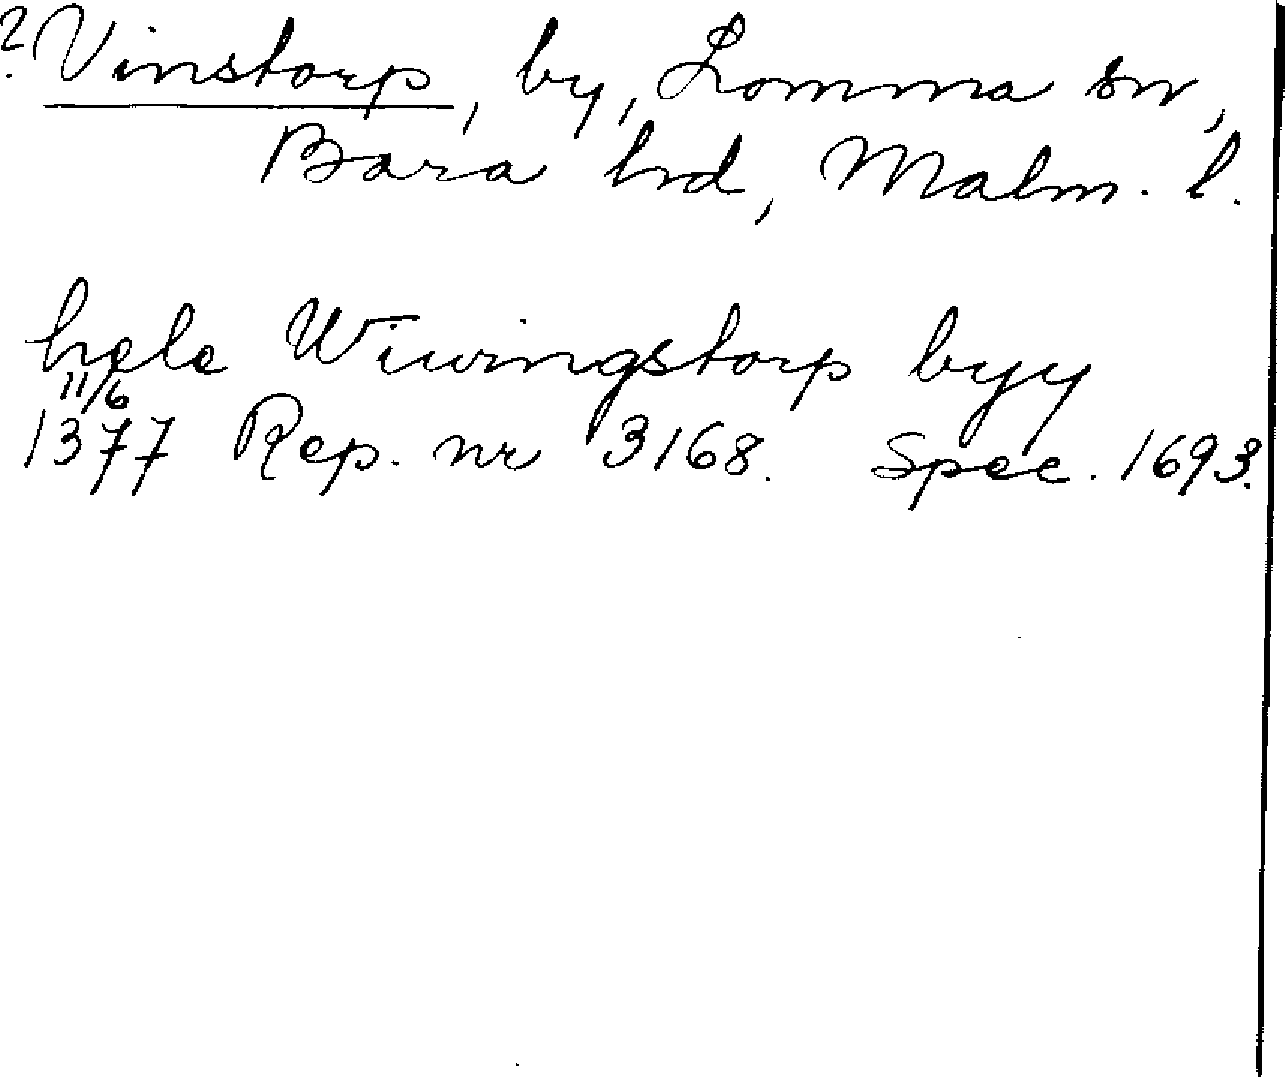 ? Vinstorp, by, Lomma sn,
Bara hd, Malm. l.
hele Wiwingstorp byy
11/6
1377 Rep. nr 3168. Spec. 1693.